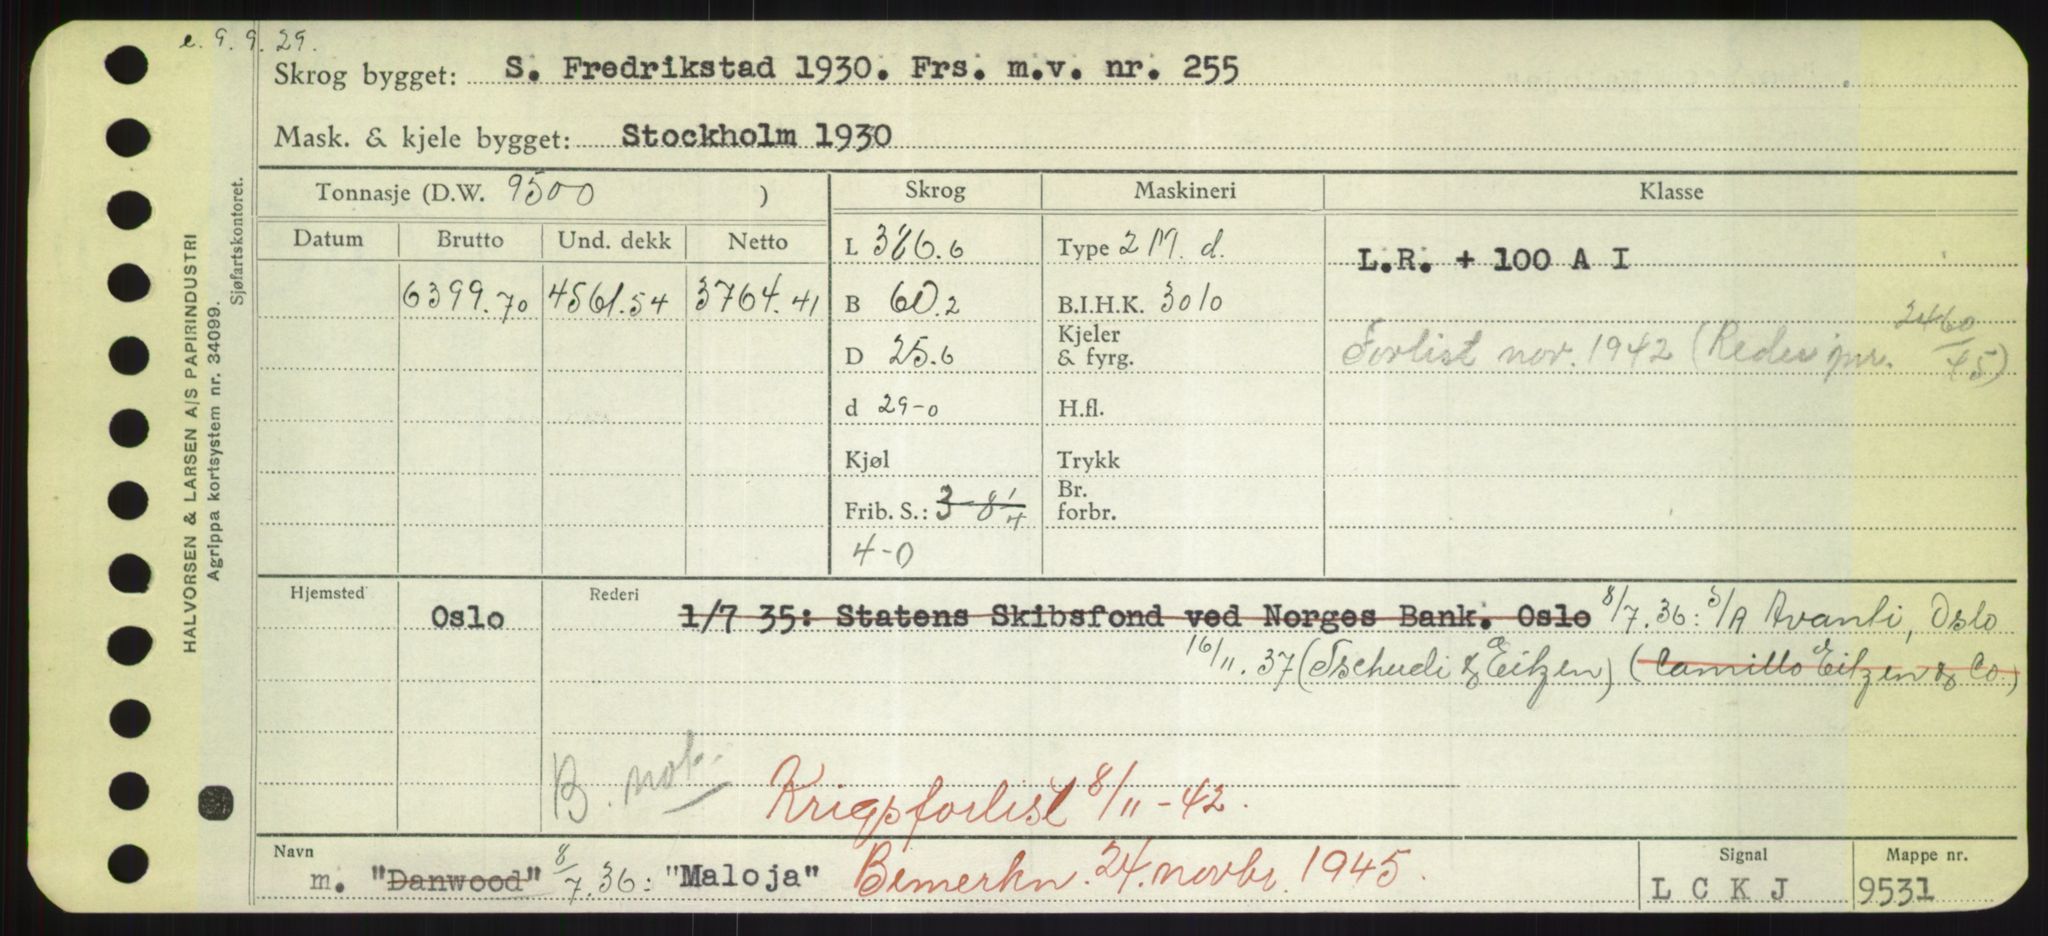 e. 9. 9. 29.
Skrog bygget: S. Fredrikstad 1930. Frs. m.v. nr. 255
Mask. & kjele bygget: Stockholm 1930
Tonnasje (D.W. 9500 ) Skrog Maskineri Klasse
Datum Brutto Und. dekk Netto L 386.6 Type 2 M. d. L.R. + 100 A I
6399.70 4561.54 3764.41 B 60.2 B.I.H.K. 3010
D 25.6 Kjeler & fyrg. Forlist nov. 1942 (Rederi jnr. 2460/45)
d 29-0 H.fl.
Kjøl Trykk
Frib. S.: 3-8 1/4 Br. forbr.
4-0
Hjemsted Oslo Rederi 1/7 35: Statens Skibsfond ved Norges Bank. Oslo 8/7.36: S/A Avanti, Oslo
16/11.37 (Tschudi & Eitzen) (Camillo Eitzen & Co.)
B. not.
Krigsforlist 8/11-42.
Navn m. "Danwood" 8/7.36: "Maloja" Bemerkn. 24. novbr. 1945. Signal L C K J Mappe nr. 9531
HALVORSEN & LARSEN A/S PAPIRINDUSTRI
Agrippa kortsystem nr. 34099.
Sjøfartskontoret.